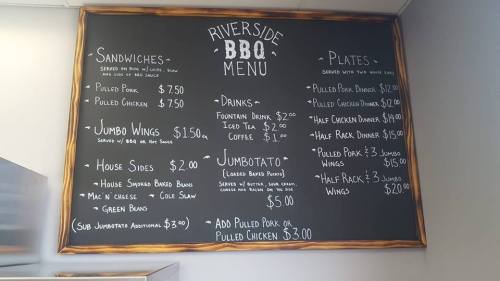 RIVERSIDE
BBQ
MENU
- SANDWICHES -
SERVED ON BUN W/ CHIPS, SLAW
AND SIDE OF BBQ SAUCE
- PULLED PORK $7.50
- PULLED CHICKEN $7.50
- JUMBO WINGS $1.50 EA
SERVED W/ BBQ OR HOT SAUCE
- HOUSE SIDES $2.00
- HOUSE SMOKED BAKED BEANS
- MAC 'N' CHEESE - COLE SLAW
- GREEN BEANS
(SUB JUMBOTATO ADDITIONAL $3.00)
- DRINKS -
FOUNTAIN DRINK $2.00
ICED TEA $2.00
COFFEE $1.00
- JUMBOTATO -
(LOADED BAKED POTATO)
SERVED W/ BUTTER, SOUR CREAM,
CHEESE AND BACON ON THE SIDE
$5.00
- ADD PULLED PORK OR
PULLED CHICKEN $3.00
- PLATES -
SERVED WITH TWO HOUSE SIDES
- PULLED PORK DINNER $12.00
- PULLED CHICKEN DINNER $12.00
- HALF CHICKEN DINNER $14.00
- HALF RACK DINNER $15.00
- PULLED PORK & 3 JUMBO
WINGS $15.00
- HALF RACK & 3 JUMBO
WINGS $20.00